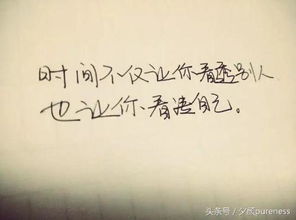 时间不仅让你看透别人
也让你看清自己。
头条号 / 夕颜pureness